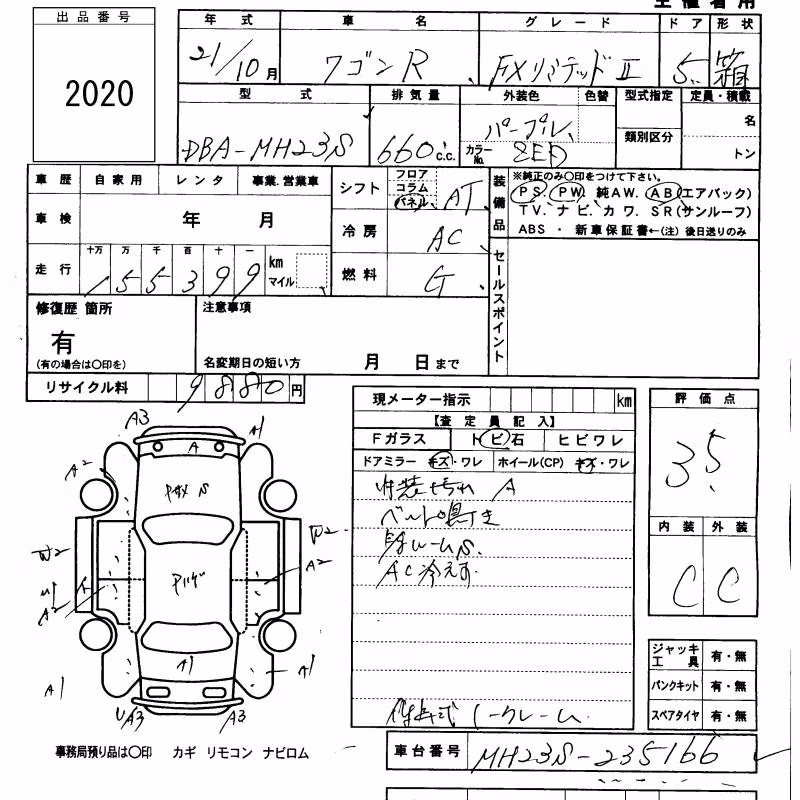 出品番号
2020
年式 車名 グレード ドア 形状
21/10月 ワゴンR FXリミテッドⅡ 5 箱
型式 排気量 外装色 色替 型式指定 定員・積載
DBA-MH23S 660c.c. パープル 類別区分 名
カラーNo. ZED トン
車歴 自家用 レンタ 事業.営業車
車検 年 月
走行 十万 万 千 百 十 一 km マイル
155399
シフト フロア コラム パネル AT
冷房 AC
燃料 G
装備品 ※純正のみ〇印をつけて下さい。
PS PW 純AW. AB(エアバック)
TV. ナビ. カワ. SR(サンルーフ)
ABS ・ 新車保証書←(注) 後日送りのみ
セールスポイント
修復歴 箇所
有
(有の場合は〇印を)
注意事項
名変期日の短い方 月 日まで
リサイクル料 9880円
現メーター指示 km
【査定員記入】
Fガラス トビ石 ヒビワレ
ドアミラー キズ・ワレ ホイール(CP) キズ・ワレ
内装汚れ A
ベルト鳴き
AC冷えず
評価点
3.5
内装 外装
C C
ジャッキ工具 有・無
パンクキット 有・無
スペアタイヤ 有・無
A3 A1
A
A2
W2 W2
A2
A2
A1 A1 A1
UA3 A3
事務局預り品は〇印 カギ リモコン ナビロム
車台番号 MH23S-235166